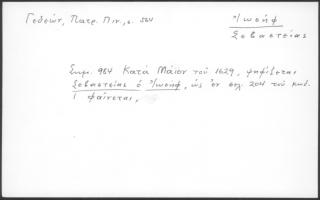 Γεδεών, Πατρ. Πιν., σ. 564
Ἰωσήφ
Σεβαστείας
Σημ. 964 Κατά Μάϊον τοῦ 1629, ψηφίζεται
Σεβαστείας ὁ Ἰωσήφ, ὡς ἐν σελ. 204 τοῦ κωδ.
1 φαίνεται,